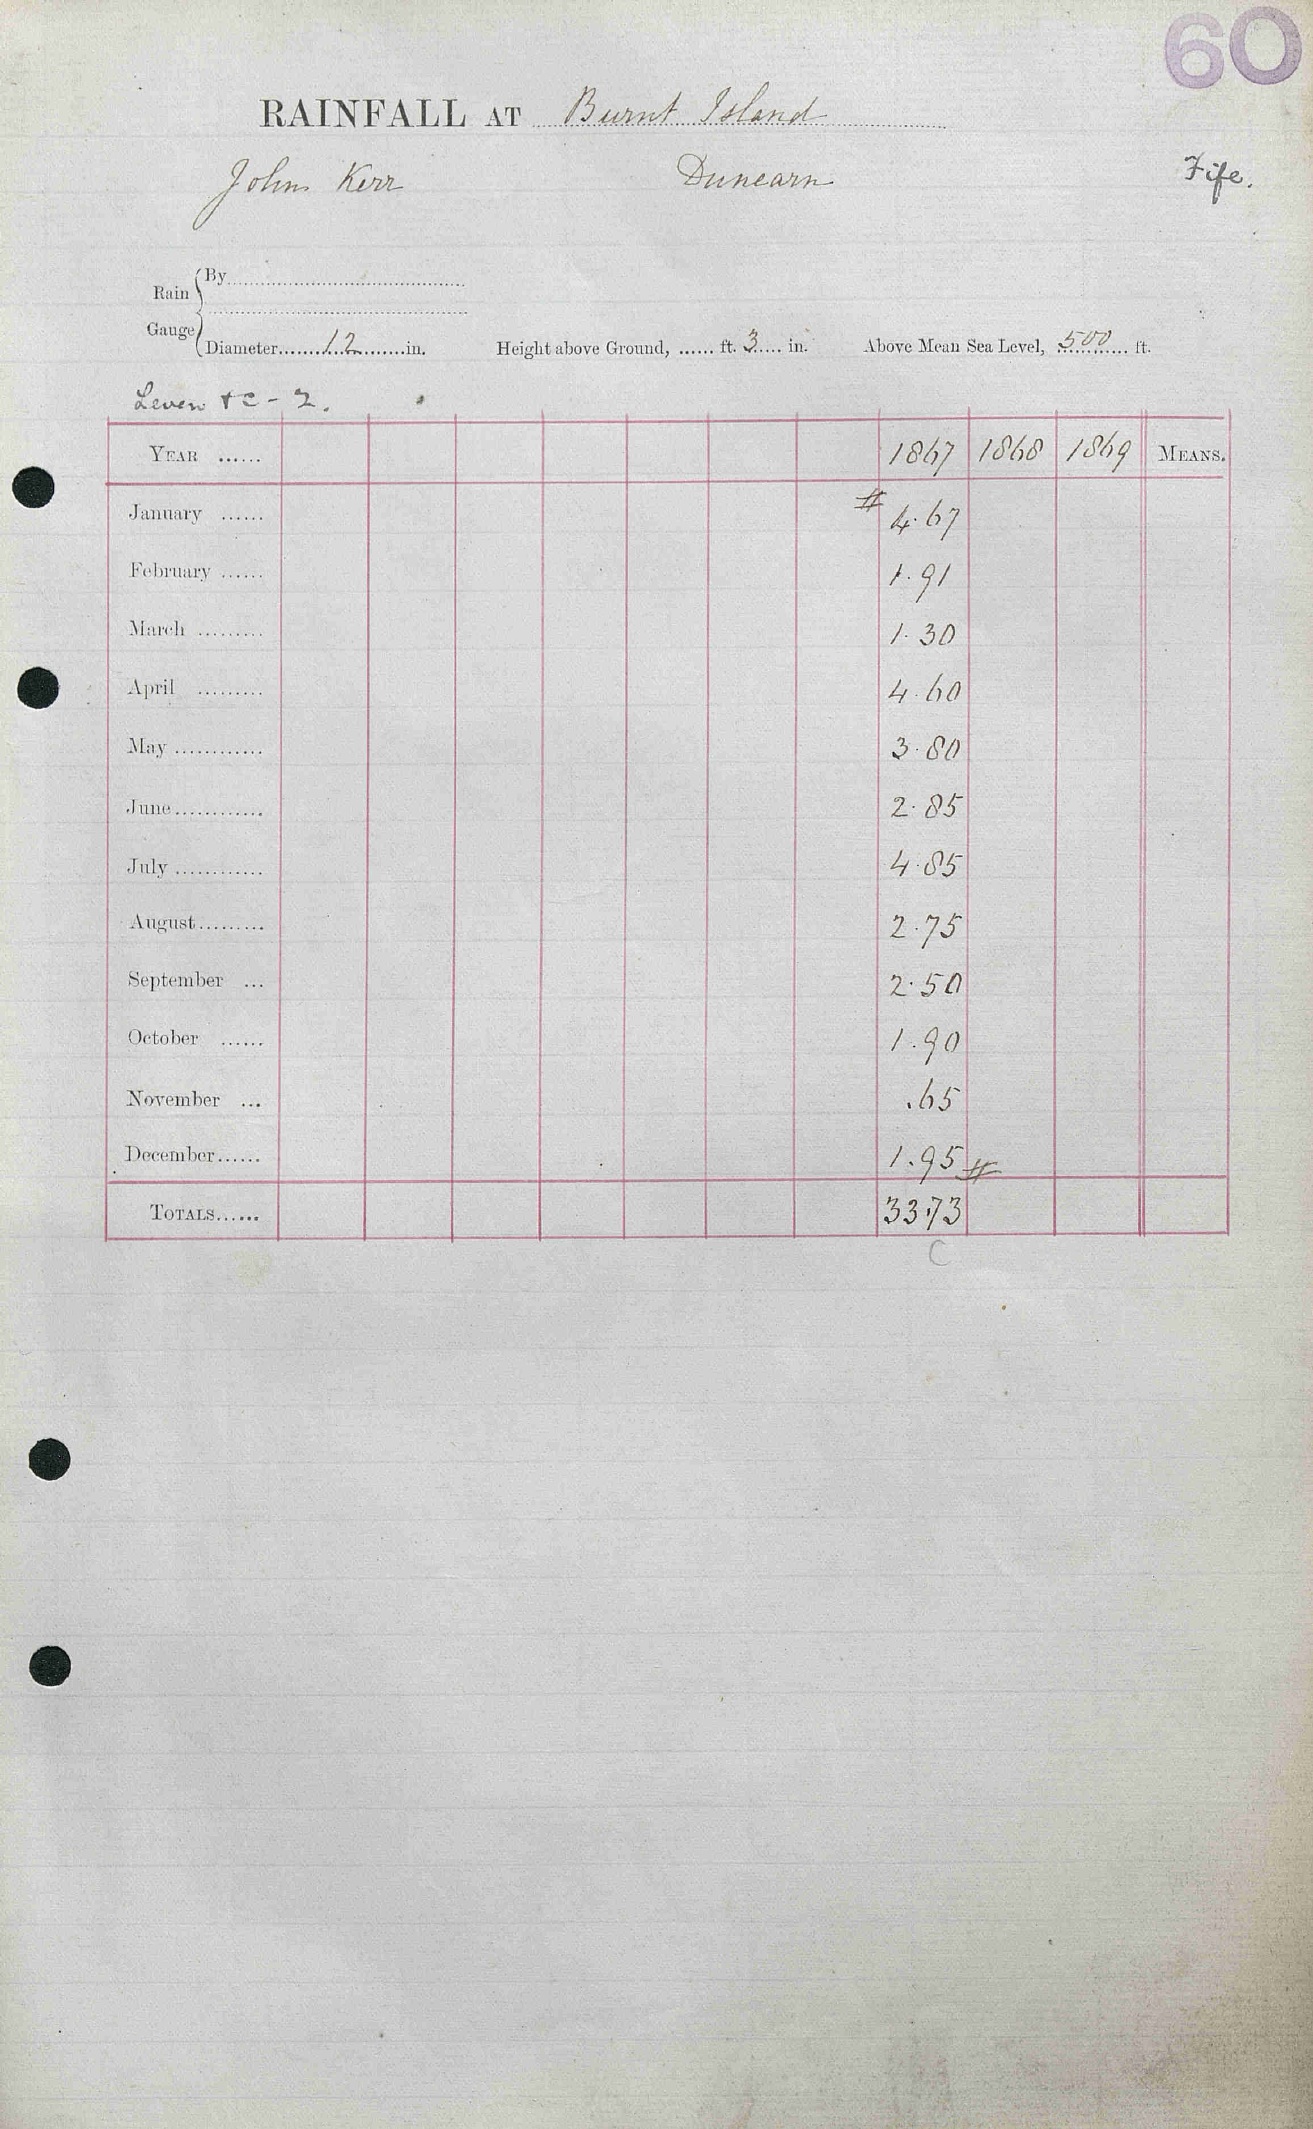 60
RAINFALL AT Burnt Island
John Kerr Dunearn Fife.
Rain Gauge
By
Diameter 12 in. Height above Ground, ...... ft. 3 in. Above Mean Sea Level, 500 ft.
Leven &c - 2.
YEAR ...... 1867 1868 1869 MEANS.
January ...... # 4.67
February ...... 1.91
March ......... 1.30
April ......... 4.60
May ............ 3.80
June ............ 2.85
July ............ 4.85
August ......... 2.75
September ... 2.50
October ...... 1.90
November ... .65
December ...... 1.95 #
TOTALS ...... 33.73
C